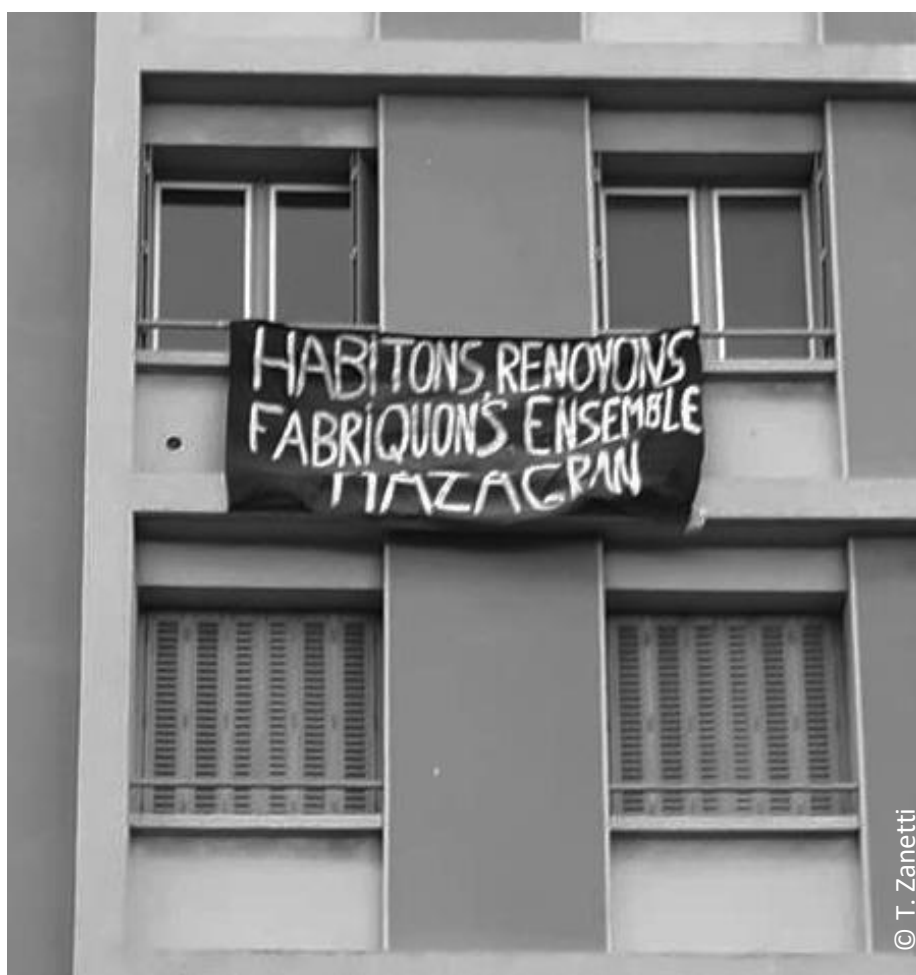 HABITONS RENOVONS
FABRIQUONS ENSEMBLE
MAZAGRAN
© T. Zanetti